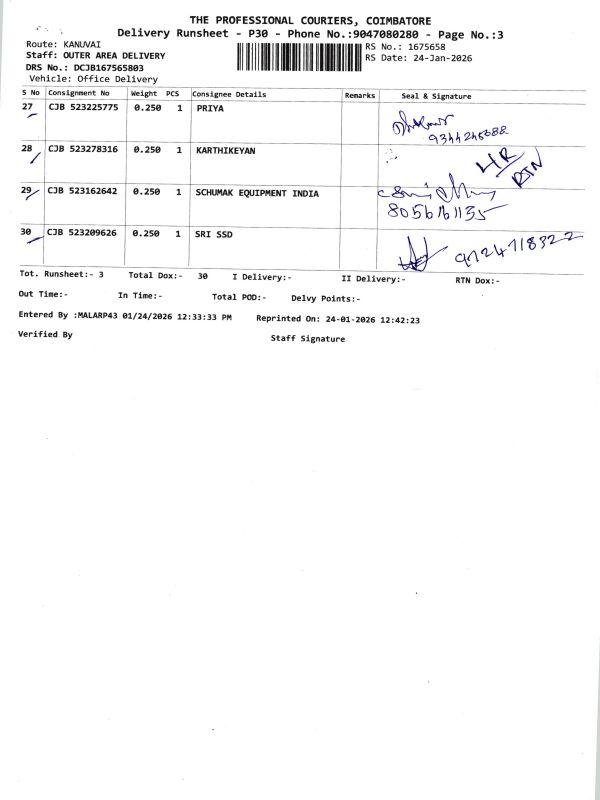 THE PROFESSIONAL COURIERS, COIMBATORE
Delivery Runsheet - P30 - Phone No.:9047080280 - Page No.:3
Route: KANUVAI
RS No.: 1675658
Staff: OUTER AREA DELIVERY
RS Date: 24-Jan-2026
DRS No.: DCJB167565803
Vehicle: Office Delivery
S No Consignment No Weight PCS Consignee Details Remarks Seal & Signature
27 CJB 523225775 0.250 1 PRIYA
28 CJB 523278316 0.250 1 KARTHIKEYAN RTN
29 CJB 523162642 0.250 1 SCHUMAK EQUIPMENT INDIA
30 CJB 523209626 0.250 1 SRI SSD
Tot. Runsheet:- 3 Total Dox:- 30 I Delivery:- II Delivery:- RTN Dox:-
Out Time:- In Time:- Total POD:- Delvy Points:-
Entered By :MALARP43 01/24/2026 12:33:33 PM Reprinted On: 24-01-2026 12:42:23
Verified By Staff Signature